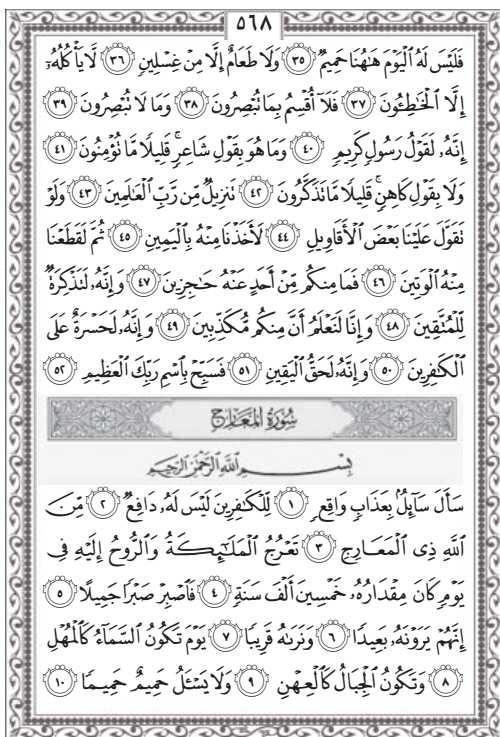 ٥٦٨
فَلَيْسَ لَهُ ٱلْيَوْمَ هَٰهُنَا حَمِيمٌ ٣٥ وَلَا طَعَامٌ إِلَّا مِنْ غِسْلِينٍ ٣٦ لَّا يَأْكُلُهُۥٓ
إِلَّا ٱلْخَٰطِـُٔونَ ٣٧ فَلَآ أُقْسِمُ بِمَا تُبْصِرُونَ ٣٨ وَمَا لَا تُبْصِرُونَ ٣٩
إِنَّهُۥ لَقَوْلُ رَسُولٍ كَرِيمٍ ٤٠ وَمَا هُوَ بِقَوْلِ شَاعِرٍ ۚ قَلِيلًا مَّا تُؤْمِنُونَ ٤١
وَلَا بِقَوْلِ كَاهِنٍ ۚ قَلِيلًا مَّا تَذَكَّرُونَ ٤٢ تَنزِيلٌ مِّن رَّبِّ ٱلْعَٰلَمِينَ ٤٣ وَلَوْ
تَقَوَّلَ عَلَيْنَا بَعْضَ ٱلْأَقَاوِيلِ ٤٤ لَأَخَذْنَا مِنْهُ بِٱلْيَمِينِ ٤٥ ثُمَّ لَقَطَعْنَا
مِنْهُ ٱلْوَتِينَ ٤٦ فَمَا مِنكُم مِّنْ أَحَدٍ عَنْهُ حَٰجِزِينَ ٤٧ وَإِنَّهُۥ لَتَذْكِرَةٌ
لِّلْمُتَّقِينَ ٤٨ وَإِنَّا لَنَعْلَمُ أَنَّ مِنكُم مُّكَذِّبِينَ ٤٩ وَإِنَّهُۥ لَحَسْرَةٌ عَلَى
ٱلْكَٰفِرِينَ ٥٠ وَإِنَّهُۥ لَحَقُّ ٱلْيَقِينِ ٥١ فَسَبِّحْ بِٱسْمِ رَبِّكَ ٱلْعَظِيمِ ٥٢
سُورَةُ المَعَارِجِ
بِسْمِ ٱللَّهِ ٱلرَّحْمَٰنِ ٱلرَّحِيمِ
سَأَلَ سَآئِلٌۢ بِعَذَابٍ وَاقِعٍ ١ لِّلْكَٰفِرِينَ لَيْسَ لَهُۥ دَافِعٌ ٢ مِّنَ
ٱللَّهِ ذِى ٱلْمَعَارِجِ ٣ تَعْرُجُ ٱلْمَلَٰٓئِكَةُ وَٱلرُّوحُ إِلَيْهِ فِى
يَوْمٍ كَانَ مِقْدَارُهُۥ خَمْسِينَ أَلْفَ سَنَةٍ ٤ فَٱصْبِرْ صَبْرًا جَمِيلًا ٥
إِنَّهُمْ يَرَوْنَهُۥ بَعِيدًا ٦ وَنَرَىٰهُ قَرِيبًا ٧ يَوْمَ تَكُونُ ٱلسَّمَآءُ كَٱلْمُهْلِ
٨ وَتَكُونُ ٱلْجِبَالُ كَٱلْعِهْنِ ٩ وَلَا يَسْـَٔلُ حَمِيمٌ حَمِيمًا ١٠